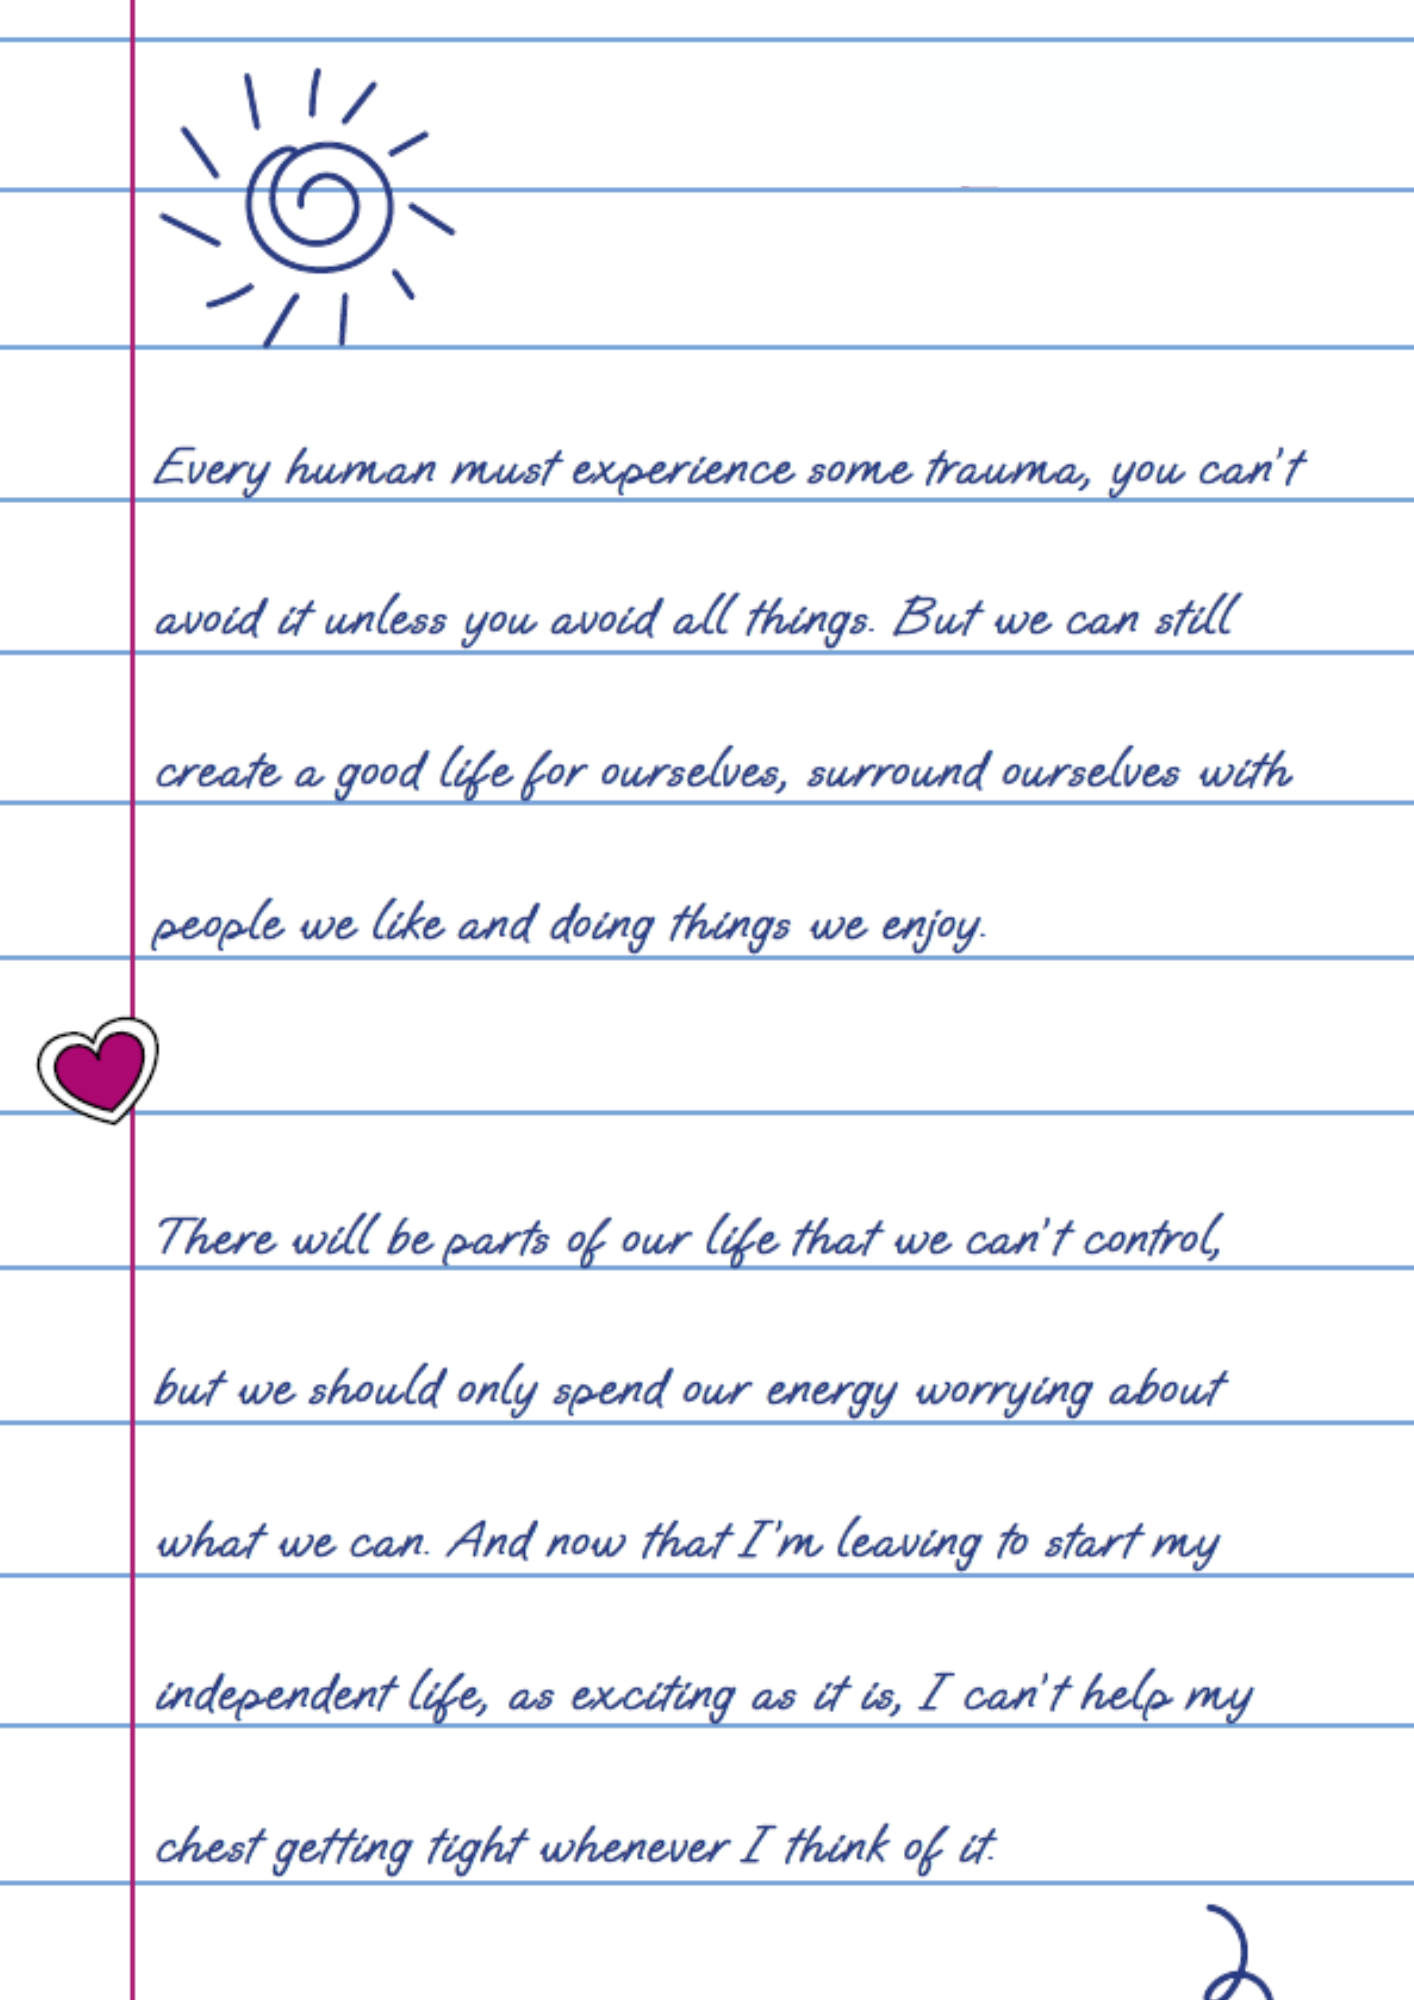 Every human must experience some trauma, you can't
avoid it unless you avoid all things. But we can still
create a good life for ourselves, surround ourselves with
people we like and doing things we enjoy.
There will be parts of our life that we can't control,
but we should only spend our energy worrying about
what we can. And now that I'm leaving to start my
independent life, as exciting as it is, I can't help my
chest getting tight whenever I think of it.